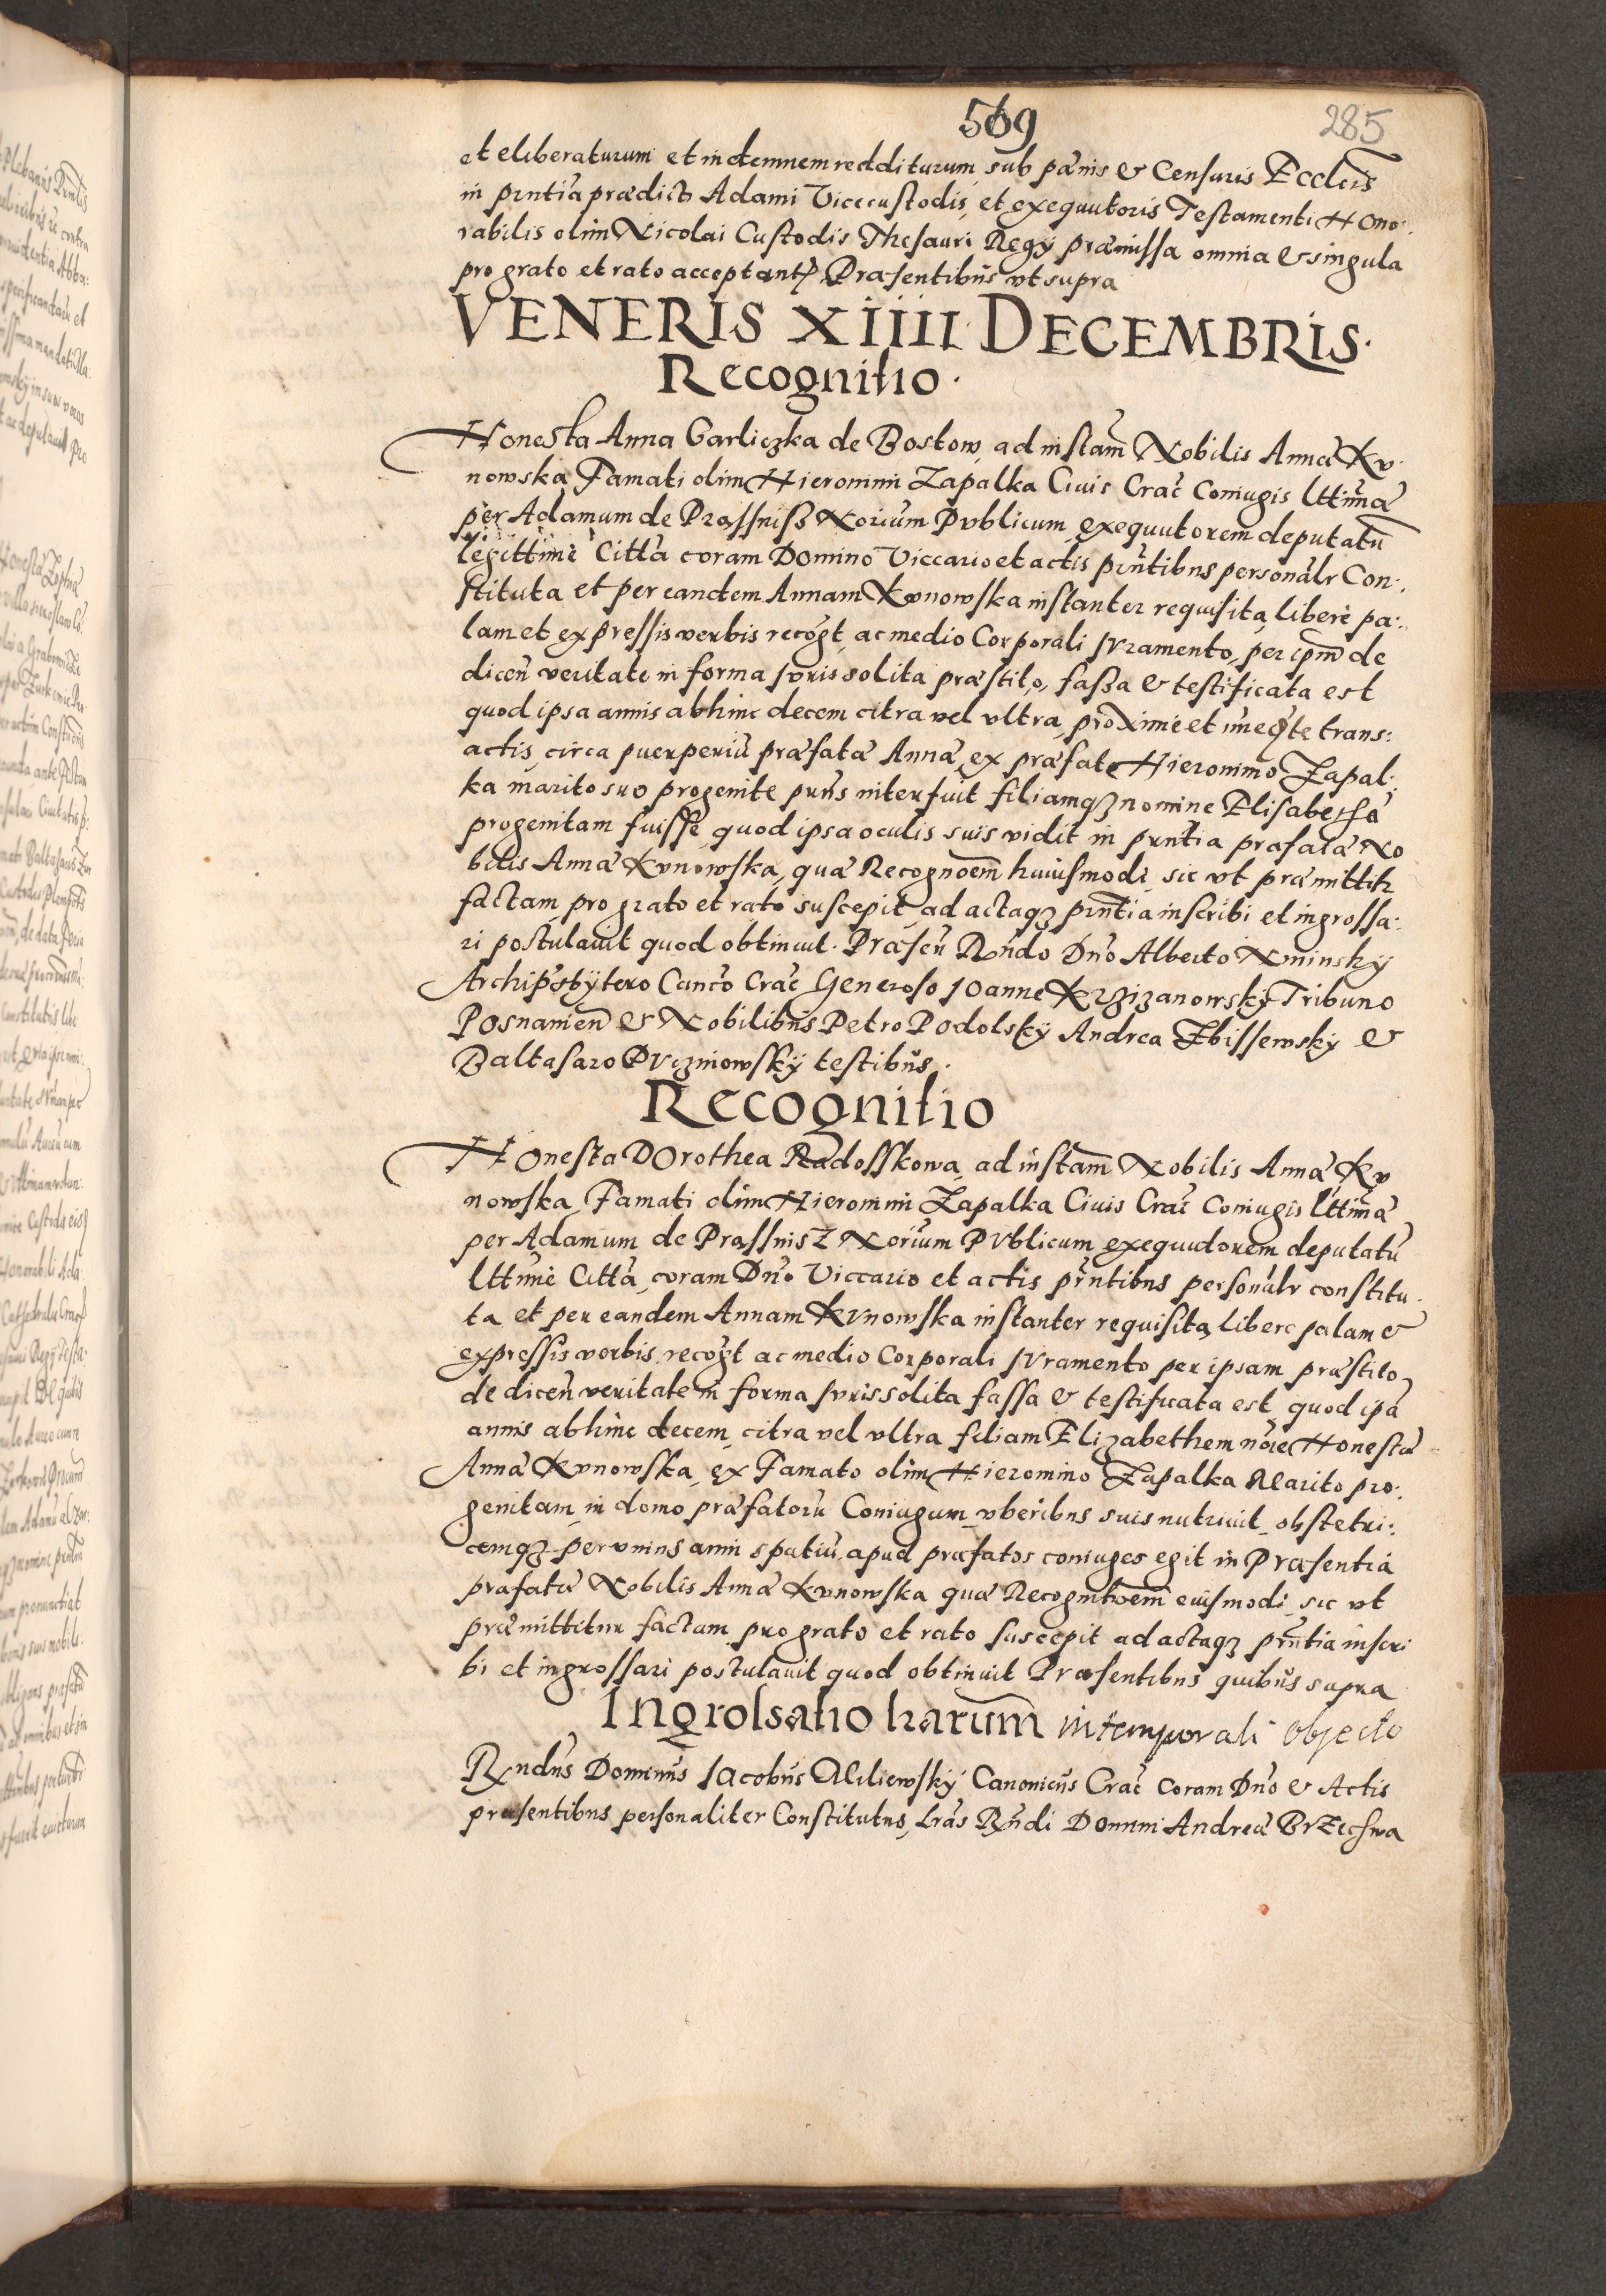 569 285
et eliberaturum et indemnem redditurum sub pænis & Censuris Eccleis
in pntia prædicti Adami Vicecustodis, et exequutoris Testamenti Hono:
rabilis olim Nicolai Custodis Thesauri Regÿ præmissa omnia & singula
pro grato et rato acceptant Præsentibus vt supra
VENERIS XIIII DECEMBRIS.
Recognitio.
Honesta Anna Garliczka de Bostow, ad instam Nobilis Annæ Kv
nowska Famati olim Hieronimi Zapalka Ciuis Crac Coniugis lttimæ
per Adamum de Prassnisz Norium Pvblicum exequutorem deputatu
legittime Citta coram Domino Viccario et actis pntibus personalr Con:
stituta et per eandem Annam Kvnowska instanter requisita, libere pa:
lam et expressis verbis recogt, ac medio Corporali Ivramento, per ipm de
dicen veritate in forma Ivris solita præstito, fassa & testificata est
quod ipsa annis abhinc decem citra vel vltra, proxime et imeqte trans:
actis, circa puerperiu præfatæ Annæ, ex præfato Hieronimo Zapal:
ka marito suo progenite pnns interfuit filiamqz nomine Elisabetha
progenitam fuisse, quod ipsa oculis suis vidit in pntia præfatæ No
bilis Annæ Kvnowska, quæ Recognoem huiusmodi, sic vt præmittitr
factam pro grato et rato suscepit, ad actaqz pntia inscribi et ingrossa:
ri postulauit quod obtinuit. Præsen Rndo Dno Alberto Kminskÿ
Archipsbÿtero Canco Crac Generoso Ioanne Krzizanowskÿ Tribuno
Posnanien & Nobilibus Petro Podolskÿ Andrea Zbissewskÿ &
Baltasaro Pvczniowskÿ testibus.
Recognitio
Honesta Dorothea Radosskowa, ad instam Nobilis Annæ Kv
nowska Famati olim Hieronimi Zapalka Ciuis Crac Coniugis lttimæ
per Adamum de Prassnisz Norium Pvblicum exequutorem deputatu
lttime Citta, coram Dno Viccario et actis pntibus personalr constitu
ta et per eandem Annam Kvnowska instanter requisita, libere palam &
expressis verbis recogt ac medio Corporali Ivramento per ipsam præstito
de dicen veritate in forma Ivris solita fassa & testificata est, quod ipa
annis abhinc decem, citra vel vltra filiam Elizabethem noie Honestæ
Annæ Kvnowska, ex Famato olim Hieronimo Zapalka Marito pro:
genitam, in domo præfatoru Coniugum, vberibus suis nutriuit, obstetri:
cemqz per vnius anni spatiu, apud præfatos coniuges egit in Præsentia
præfatæ Nobilis Annæ Kvnowska quæ Recognitoem eiusmodi, sic vt
præmittitur factam pro grato et rato suscepit ad actaqz pntia inscri
bi et ingrossari postulauit quod obtinuit Præsentibus quibus supra
Ingrossatio harum in temporali objecto
Rndus Dominus Iacobus Miliewskÿ Canonicus Crac coram Dno & Actis
præsentibus personaliter Constitutus, lras Rndi Domini Andreæ Brzechwa